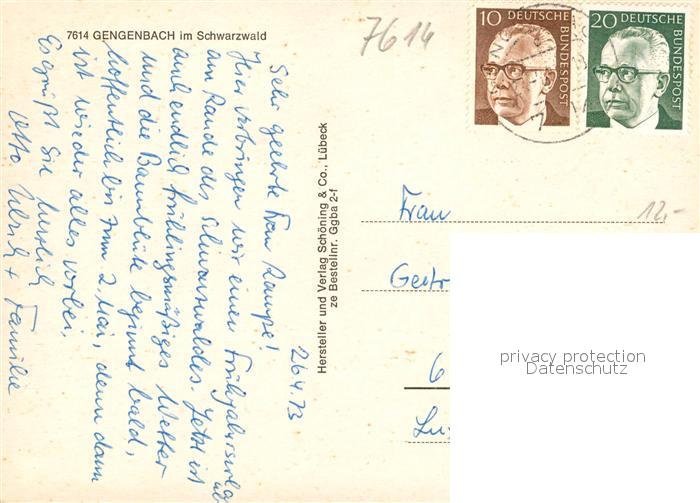 7614 GENGENBACH im Schwarzwald
7614
10 DEUTSCHE BUNDESPOST
20 DEUTSCHE BUNDESPOST
26.4.73
Sehr geehrte Frau Rampe!
Hier verbringen wir einen Frühjahrsurlaub
am Rande des Schwarzwaldes. Jetzt ist
auch endlich frühlingsmäßiges Wetter
und die Baumblüte beginnt bald,
hoffentlich bis zum 2. Mai, denn dann
ist wieder alles vorbei.
Es grüßt Sie herzlich
Otto Ulrich + Familie
Hersteller und Verlag Schöning & Co., Lübeck
ze Bestellnr. Ggba 2-f
Frau
12,-
Gertr
6
privacy protection
Datenschutz